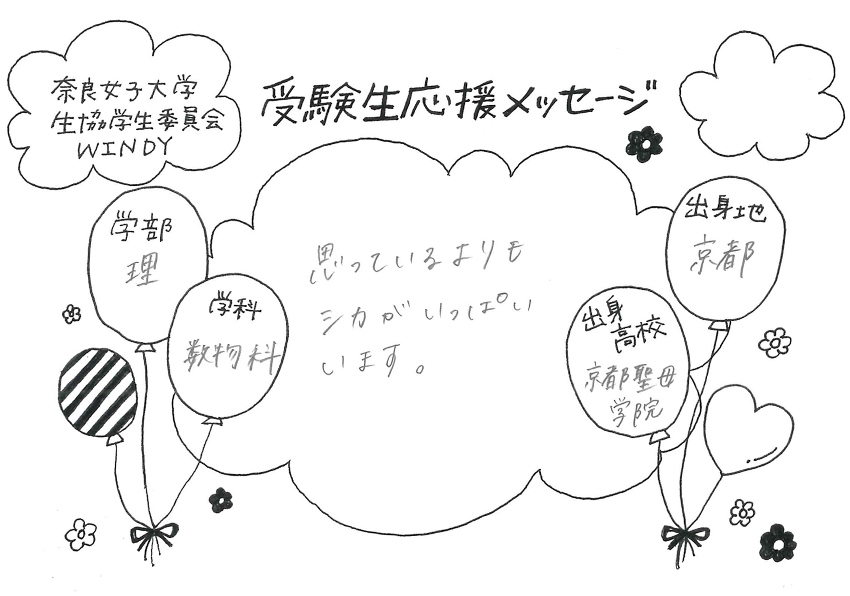 奈良女子大学
生協学生委員会
WINDY
受験生応援メッセージ
学部
理
学科
数物科
思っているよりも
シカがいっぱい
います。
出身地
京都
出身
高校
京都聖母
学院